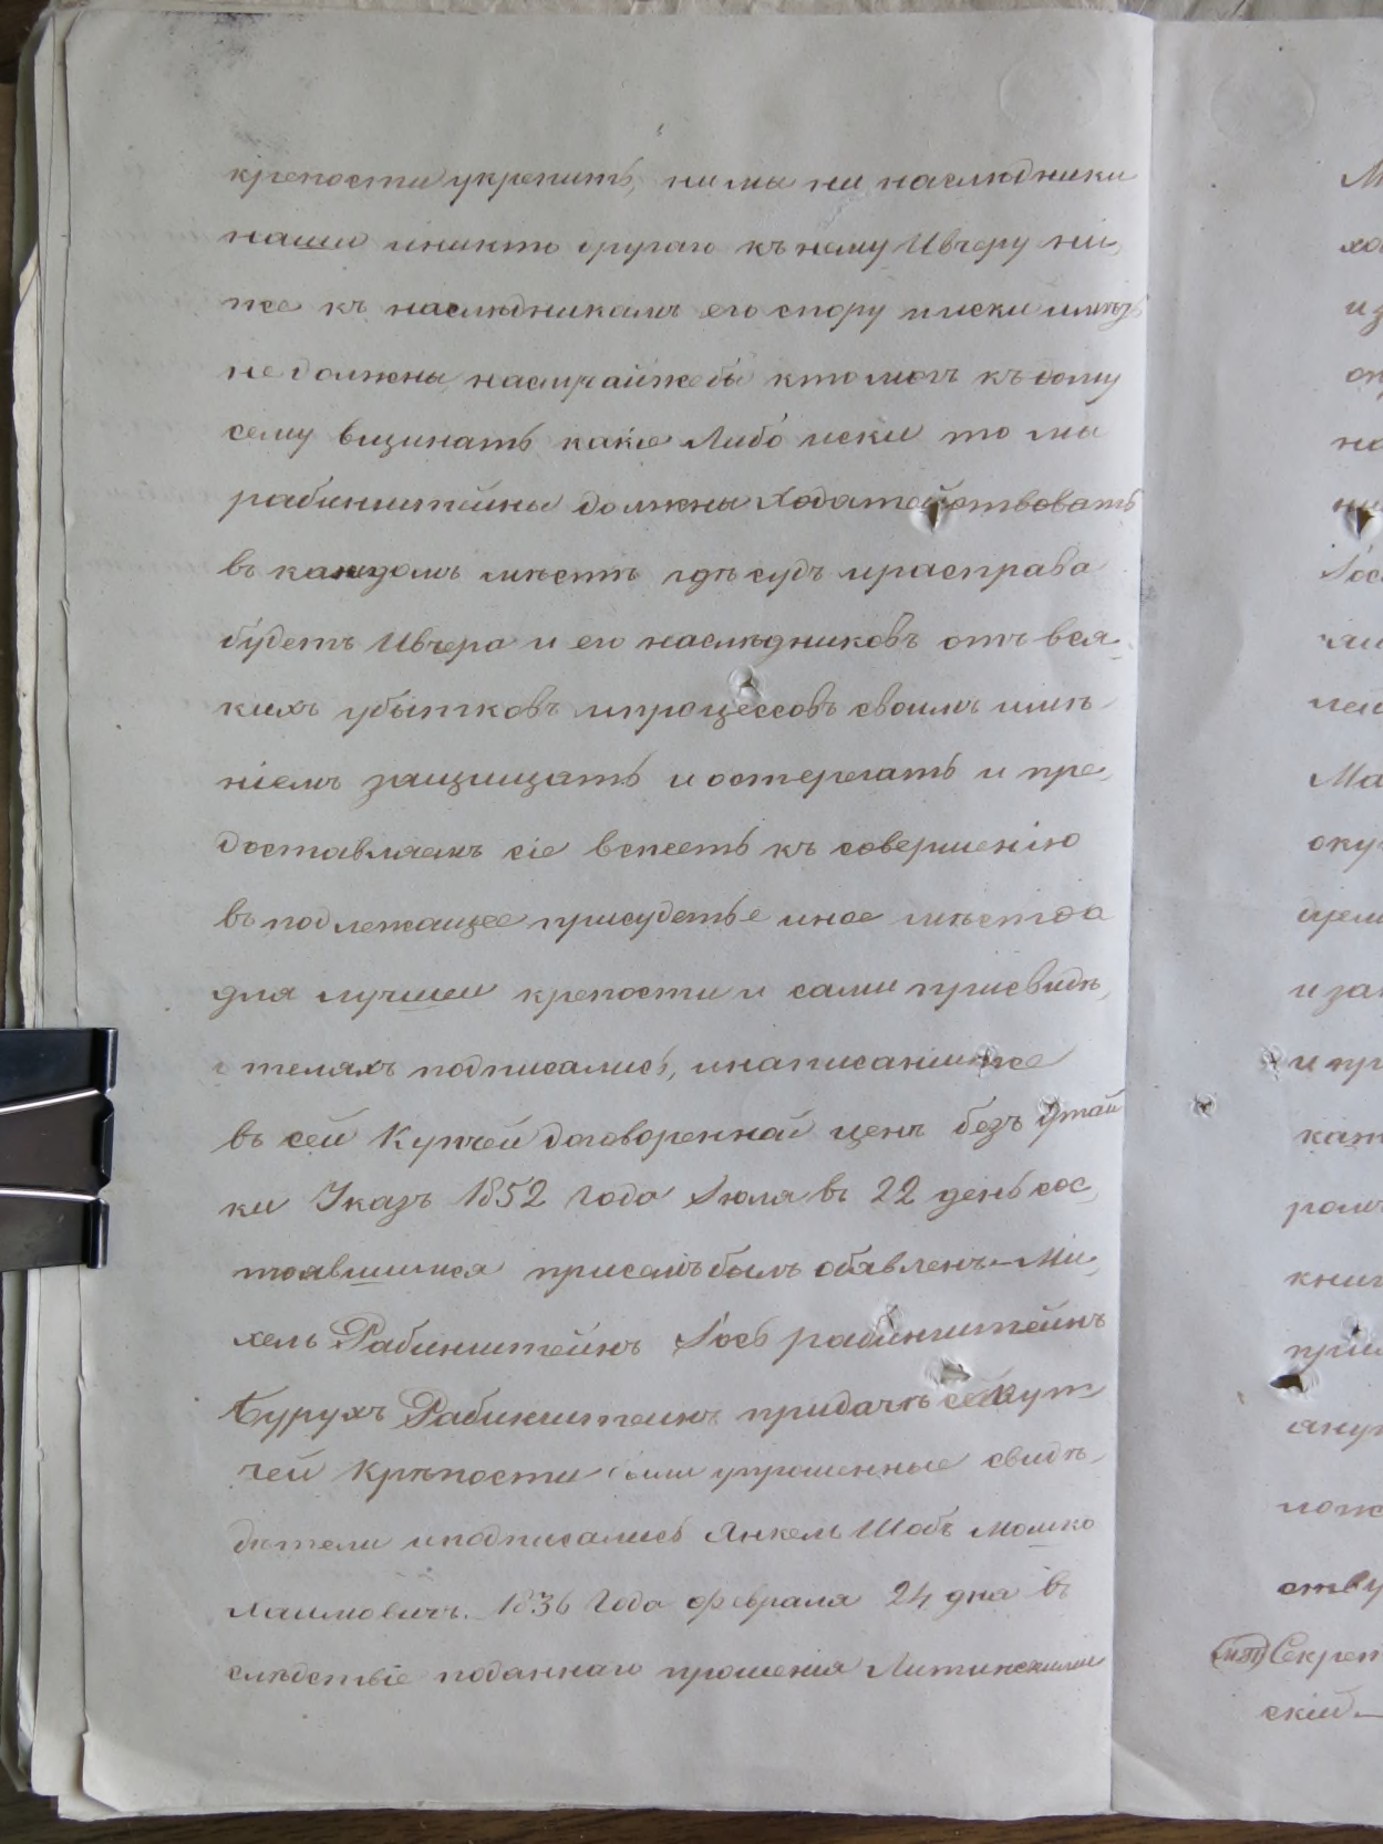 крепости укрепить, ни мы ни наслѣдники
наши иникто другаго къ нему Ивчеру ни,
же къ наслѣдникамъ его спору и иски имѣть
не должны, наслучайже бы кто могъ къ дому
сему вщинать какіе Либо иски то мы
рабинштейны должны Ходатействовать
въ каждомъ мѣстѣ гдѣ судъ ирасправа
будетъ Ивчера и его наслѣдниковъ отъ вся-
кихъ убытковъ ипроцессовъ своимъ имѣ-
ніемъ защищать и остерегать и пре,
доставляемъ сіе внесть къ совершенію
въ подлежащее присудстье иное мѣсто а
для лучшеи крепости и сами присвидѣ,
теляхъ подписались, инаписаниже
въ сей Купчеи договоренной ценѣ безъ утай
ки Указъ 1852 Года Іюля въ 22 день сос,
тоявшиися присемъ былъ обявленъ — Ми,
хель Рабинштейнъ Іось рабинштейнъ
Бурухъ Рабинштеинъ придачѣ сей Куп
чей Крѣпости были упрошенные свидѣ-
дѣтели иподписались Янкель Шобъ Мошко
Хаимовичъ. 1836 Года Февраля 24 дня въ
слѣдствіе поданнаго прошенія Литинскими
М
хо
из
ок
на
Іос
Ма
оку
иза
ипр
кат
ром
книг
при
отву
(мп) Секрет
скій —